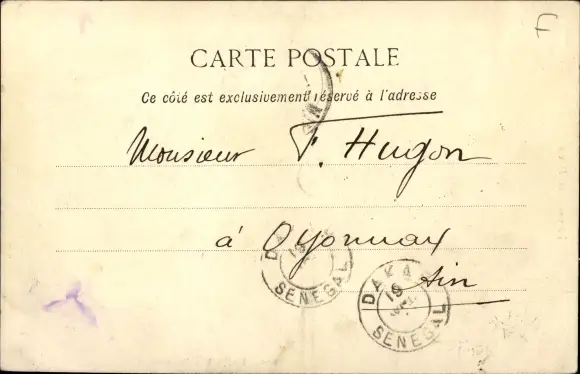 F
CARTE POSTALE
Ce côté est exclusivement réservé à l'adresse
Monsieur F. Hugon
à Oyonnax
Ain
DAKAR
19
SENEGAL
DAKAR
19
SENEGAL